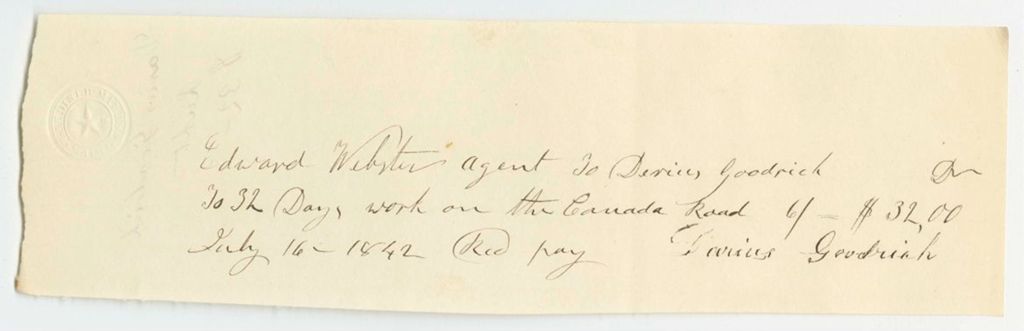 Edward Webster agent To Derius Goodrich Dr
To 32 Days work on the Canada Road 6/ — $ 32,00
July 16 — 1842 Recd pay Derius Goodrich